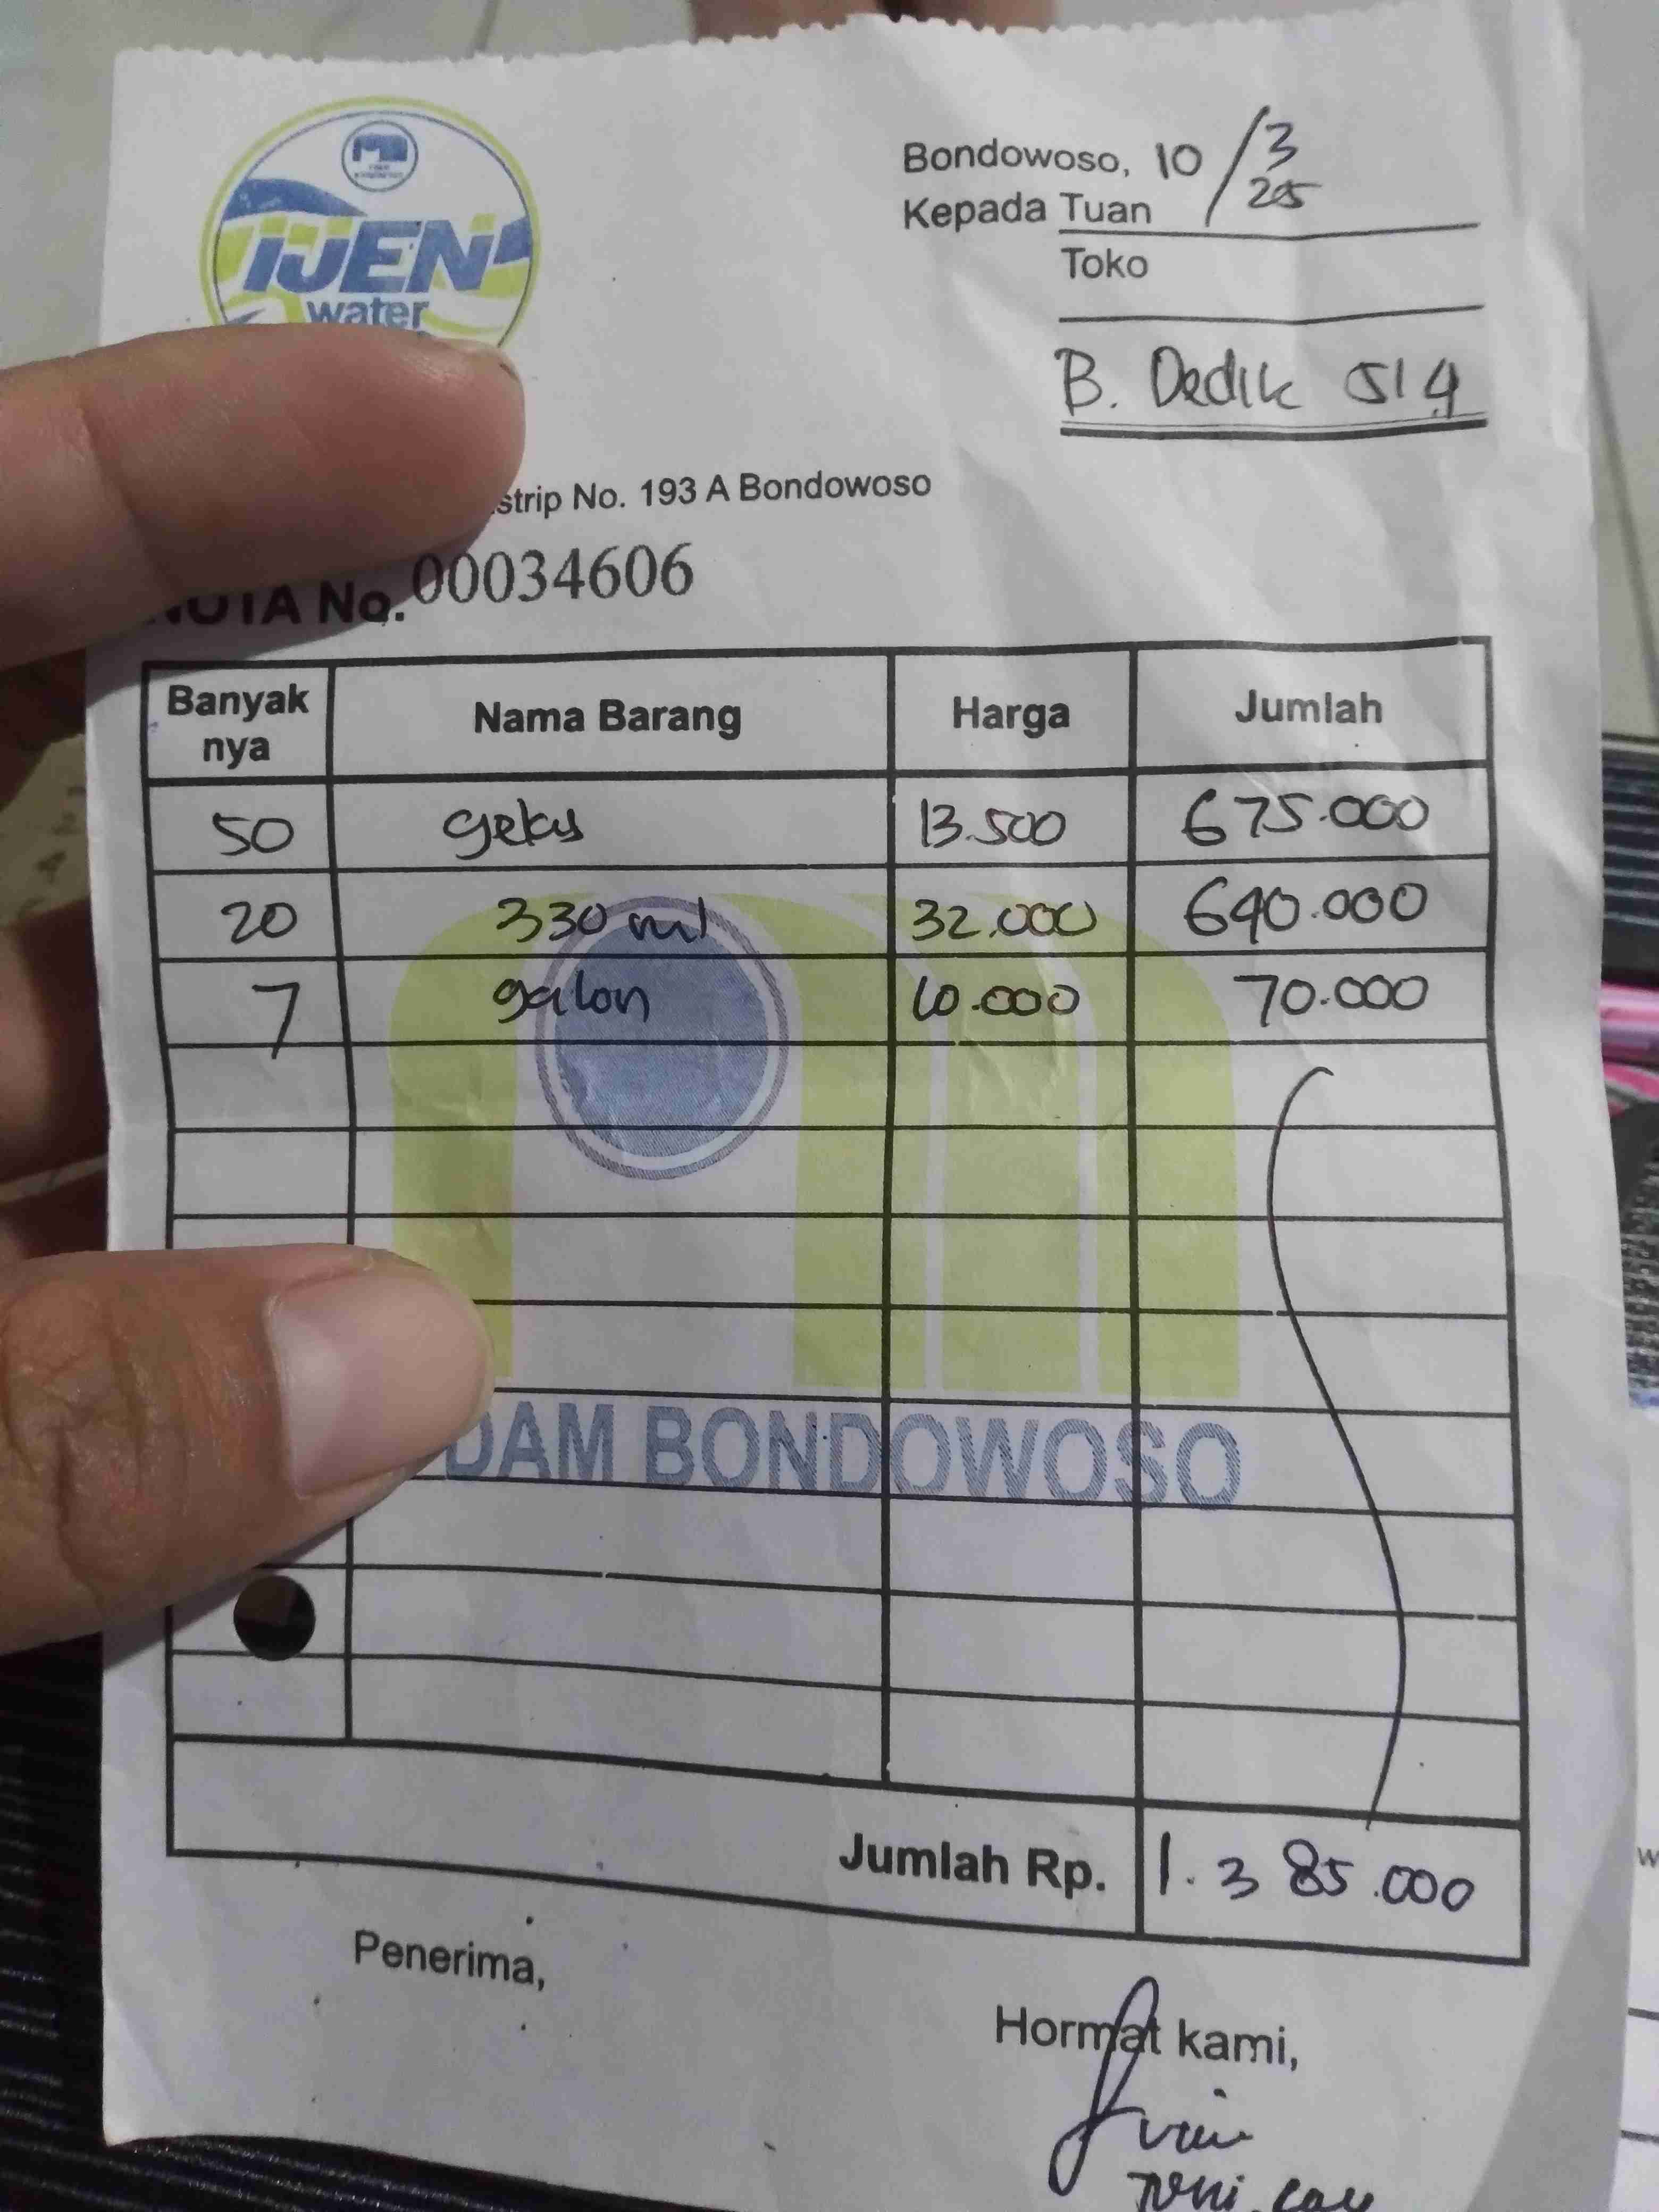 IJEN
water
Bondowoso, 10/3 205
Kepada Tuan
Toko
B. Dedik 514
strip No. 193 A Bondowoso
NOTA No. 00034606
Banyak nya Nama Barang Harga Jumlah
50 gelas 13.500 675.000
20 330 ml 32.000 640.000
7 galon 10.000 70.000
DAM BONDOWOSO
Jumlah Rp. 1.385.000
Penerima,
Hormat kami,